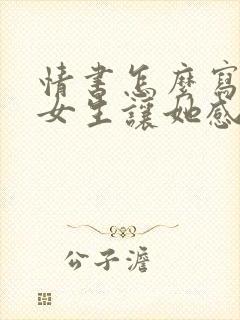 情書怎麼寫
女生讓她感
公子澹